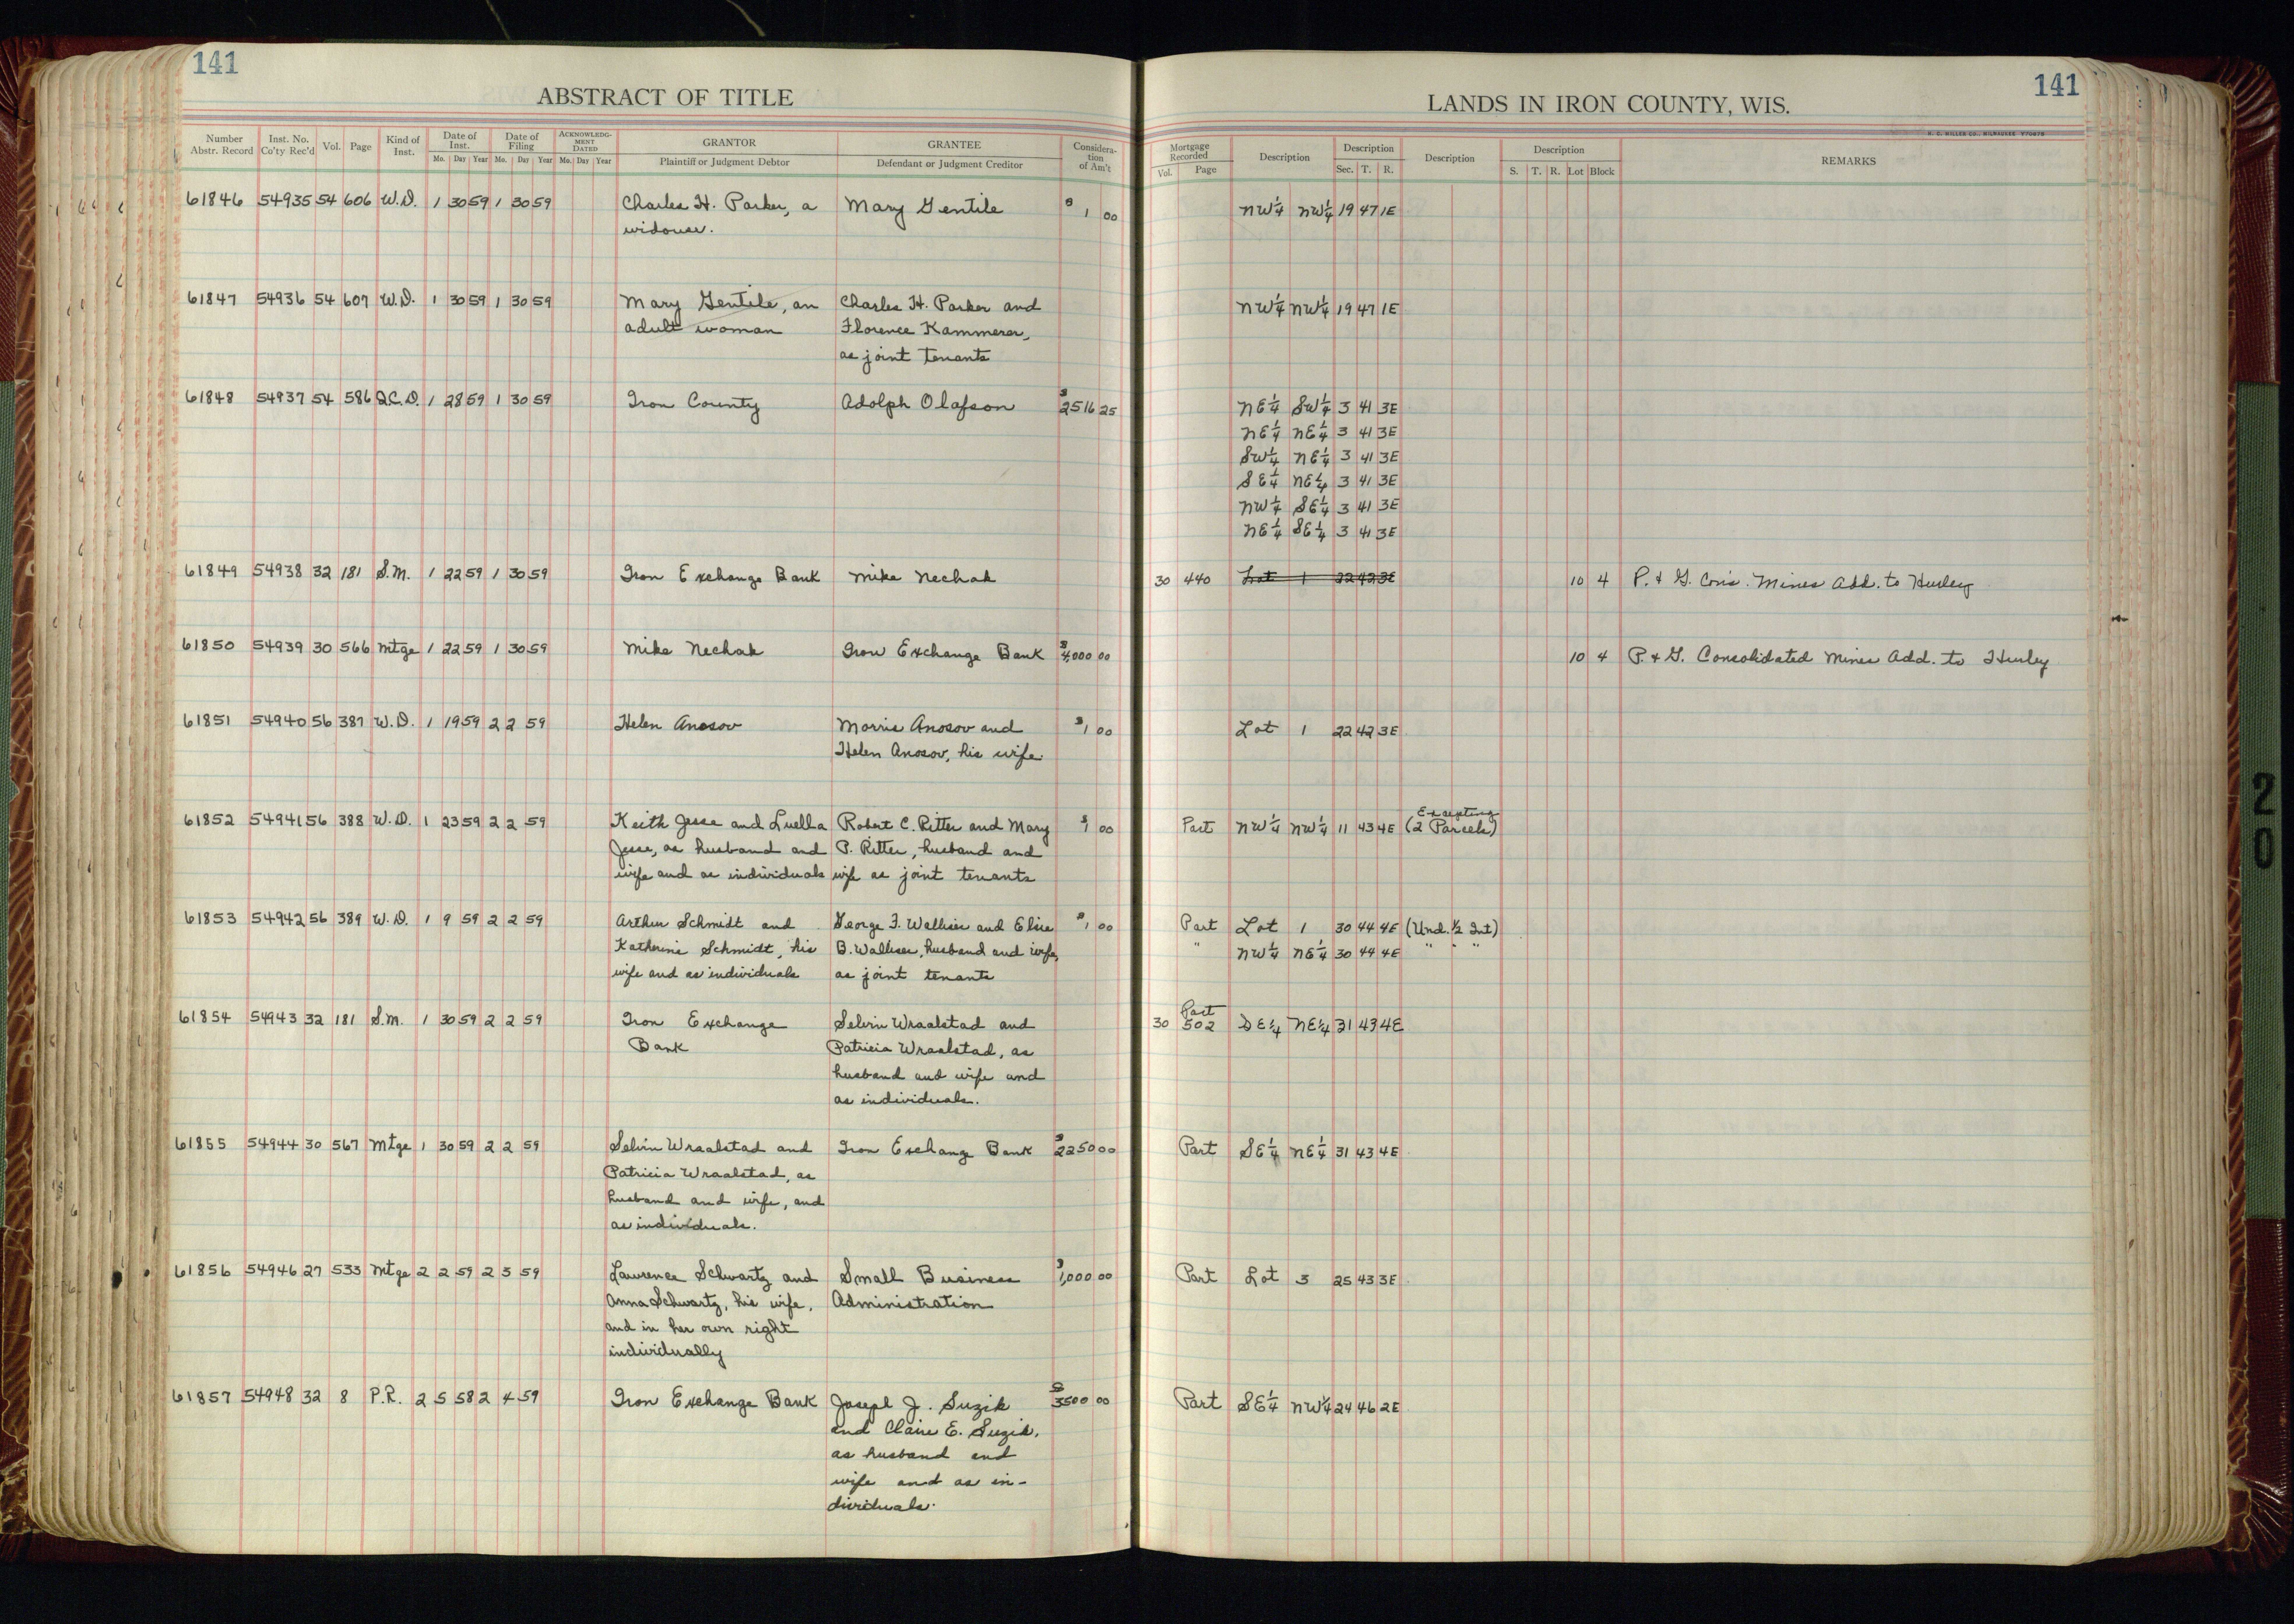 141
ABSTRACT OF TITLE
Number Abstr. Record Inst. No. Co'ty Rec'd Vol. Page Kind of Inst. Date of Inst. Mo. Day Year Date of Filing Mo. Day Year ACKNOWLEDGMENT DATED Mo. Day Year GRANTOR Plaintiff or Judgment Debtor GRANTEE Defendant or Judgment Creditor Consideration of Am't
141
LANDS IN IRON COUNTY, WIS.
H. C. MILLER CO., MILWAUKEE
Mortgage Recorded Vol. Page Description Description Sec. T. R. Description Description S. T. R. Lot Block REMARKS
61846 54935 54 606 W.D. 1 30 59 1 30 59 Charles H. Parker, a Mary Gentile $1 00 NW¼ NW¼ 19 47 1E
widower.
61847 54936 54 607 W.D. 1 30 59 1 30 59 Mary Gentile, an Charles H. Parker and NW¼ NW¼ 19 47 1E
adult woman Florence Kammerer,
as joint tenants
61848 54937 54 586 Q.C.D. 1 28 59 1 30 59 Iron County Adolph Olafson $2516 25 NE¼ SW¼ 3 41 3E
NE¼ NE¼ 3 41 3E
SW¼ NE¼ 3 41 3E
SE¼ NE¼ 3 41 3E
NW¼ SE¼ 3 41 3E
NE¼ SE¼ 3 41 3E
61849 54938 32 181 S.M. 1 22 59 1 30 59 Iron Exchange Bank Mike Nechak 30 440 Lot 1 22 42 3E 10 4 P. & G. Con's. Mines Add. to Hurley
61850 54939 30 566 Mtge 1 22 59 1 30 59 Mike Nechak Iron Exchange Bank $4,000 00 10 4 P. & G. Consolidated Mines Add. to Hurley
61851 54940 56 387 W.D. 1 19 59 2 2 59 Helen Anosov Morris Anosov and $1 00 Lot 1 22 42 3E
Helen Anosov, his wife.
61852 54941 56 388 W.D. 1 23 59 2 2 59 Keith Jesse and Luella Robert C. Ritter and Mary $1 00 Part NW¼ NW¼ 11 43 4E Excepting (2 Parcels)
Jesse, as husband and P. Ritter, husband and
wife and as individuals wife as joint tenants
61853 54942 56 389 W.D. 1 9 59 2 2 59 Arthur Schmidt and George F. Walliser and Elsie $1 00 Part Lot 1 30 44 4E (Und. ½ Int)
Katherine Schmidt, his B. Walliser, husband and wife, " NW¼ NE¼ 30 44 4E " " "
wife and as individuals as joint tenants
61854 54943 32 181 S.M. 1 30 59 2 2 59 Iron Exchange Selvin Wraalstad and 30 Part 502 SE¼ NE¼ 31 43 4E
Bank Patricia Wraalstad, as
husband and wife and
as individuals.
61855 54944 30 567 Mtge 1 30 59 2 2 59 Selvin Wraalstad and Iron Exchange Bank $2250 00 Part SE¼ NE¼ 31 43 4E
Patricia Wraalstad, as
husband and wife, and
as individuals.
61856 54946 27 533 Mtge 2 2 59 2 3 59 Lawrence Schwartz and Small Business $1,000 00 Part Lot 3 25 43 3E
Anna Schwartz, his wife, Administration
and in her own right
individually
61857 54948 32 8 P.R. 2 5 58 2 4 59 Iron Exchange Bank Joseph J. Suzik $3500 00 Part SE¼ NW¼ 24 46 2E
and Claire E. Suzik,
as husband and
wife and as in-
dividuals.
20